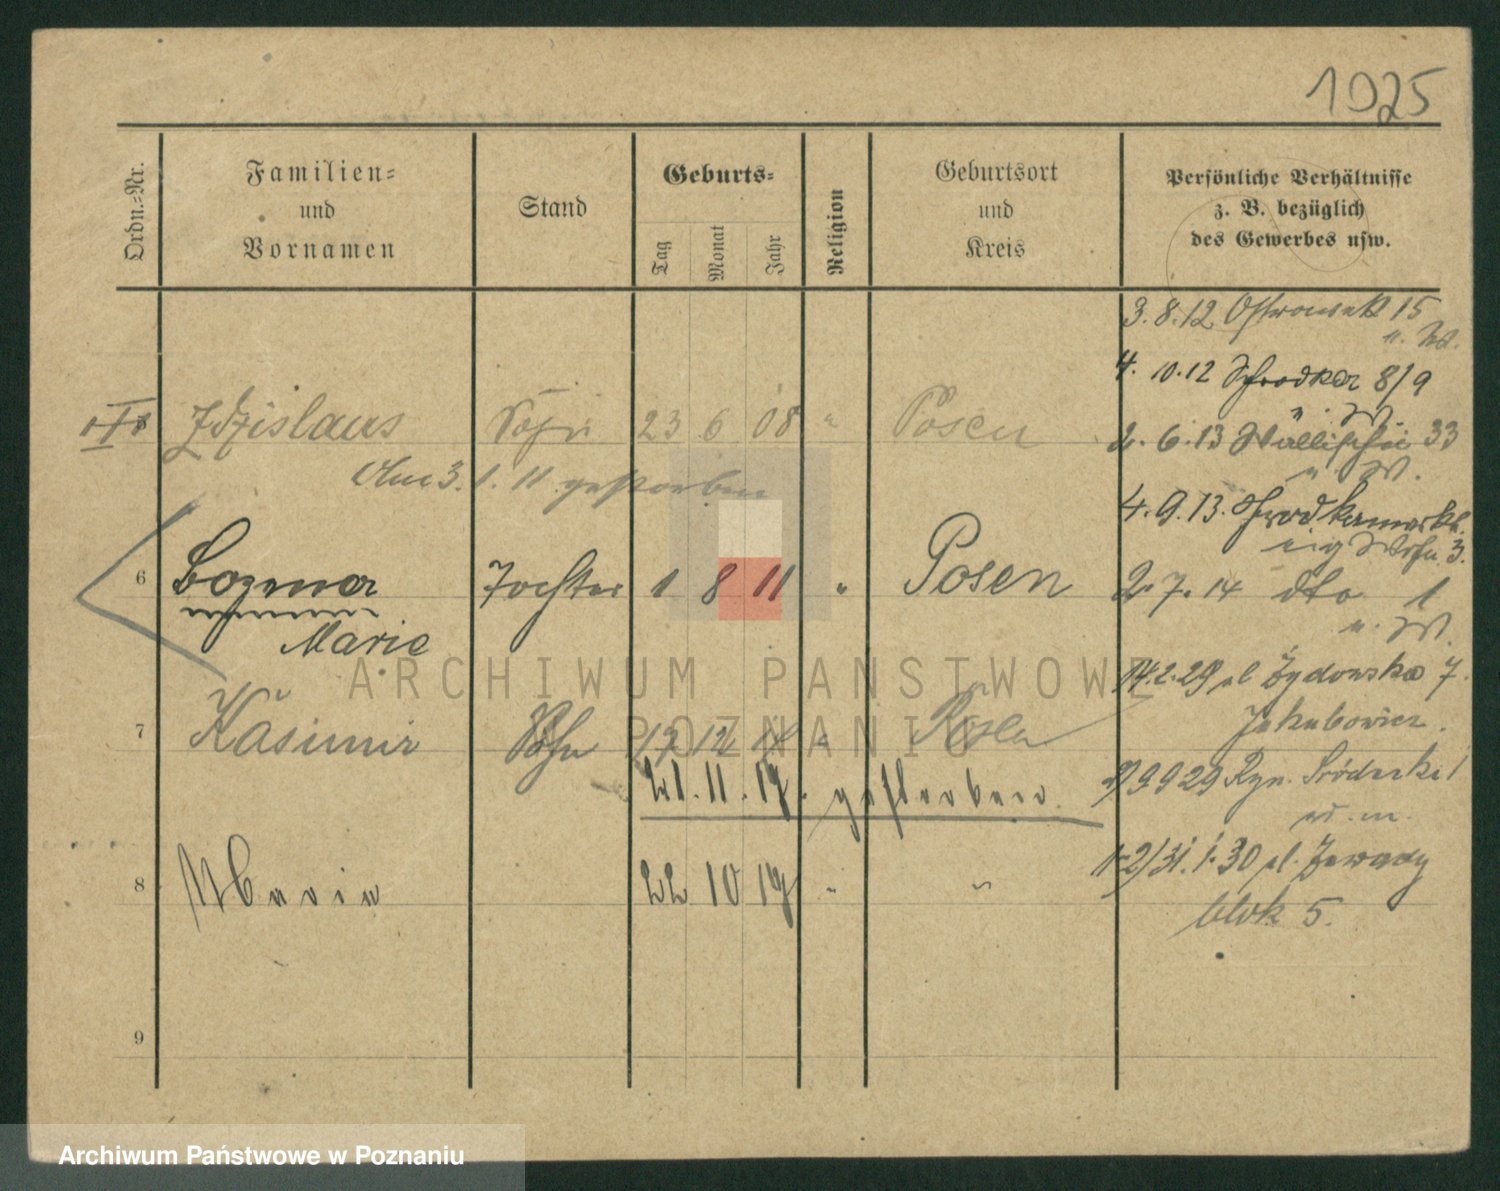 1025
Ordn.-Nr.
Familien-
und
Vornamen
Stand
Geburts-
Tag
Monat
Jahr
Religion
Geburtsort
und
Kreis
Persönliche Verhältnisse
z. B. bezüglich
des Gewerbes usw.
3.8.12 15
4.10.12 8/9
Zdzislaus 23 6 08 " Posen
2.6.13 Wallischei 33
Am 3.1.11 gestorben
4.9.13.
6 Tochter 1 8 11 " Posen
2.7.14 dto 1
Marie
ARCHIWUM PAŃSTWOWE
14.2.29 pl Żydowska 7.
7 Kasimir Sohn 12 Posen
Jakubowicz.
POZNANIU
21.11.19. gestorben
9.9.29 Ryn. Śródecki 1
w. m.
8 Maria 22 10 19 " "
31.1.30 pl. Zawady
blok 5.
9
Archiwum Państwowe w Poznaniu